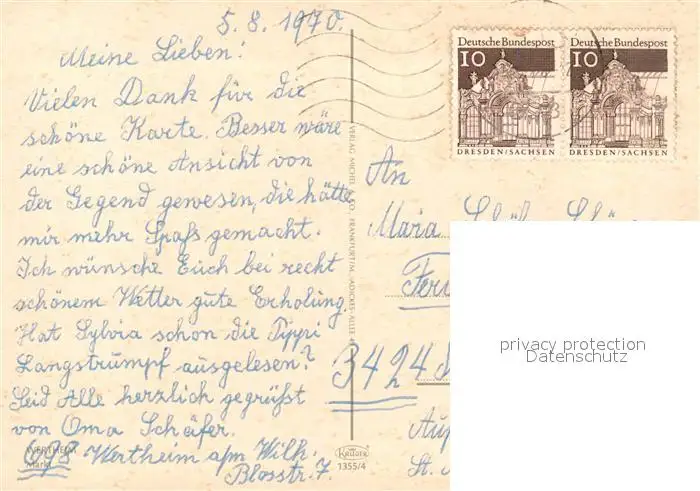 5.8.1970.
Meine Lieben!
Vielen Dank für die
schöne Karte. Besser wäre
eine schöne Ansicht von
der Gegend gewesen, die hätte
mir mehr Spaß gemacht.
Ich wünsche Euch bei recht
schönem Wetter gute Erholung.
Hat Sylvia schon die Pippi
Langstrumpf ausgelesen?
Seid Alle herzlich gegrüßt
von Oma Schäfer.
698 Wertheim a/m Wilh.
Blosstr. 7.
WERTHEIM
Markt
VERLAG MICHEL & CO., FRANKFURT/M., ADICKES-ALLEE
Krüger
1355/4
Deutsche Bundespost
10
DRESDEN/SACHSEN
Deutsche Bundespost
10
DRESDEN/SACHSEN
An
Maria
Feri
3424
Auf
St.
privacy protection
Datenschutz